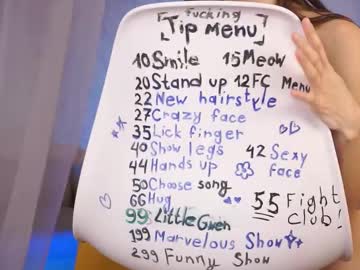 fucking
[Tip Menu]
10 Smile 15 Meow
20 Stand up 12 FC Menu
22 New hairstyle
27 Crazy face
35 Lick finger
40 Show legs 42 Sexy face
44 Hands up
50 Choose song
66 Hug 55 Fight Club!
99 Little Gwen
199 Marvelous Show
299 Funny Show